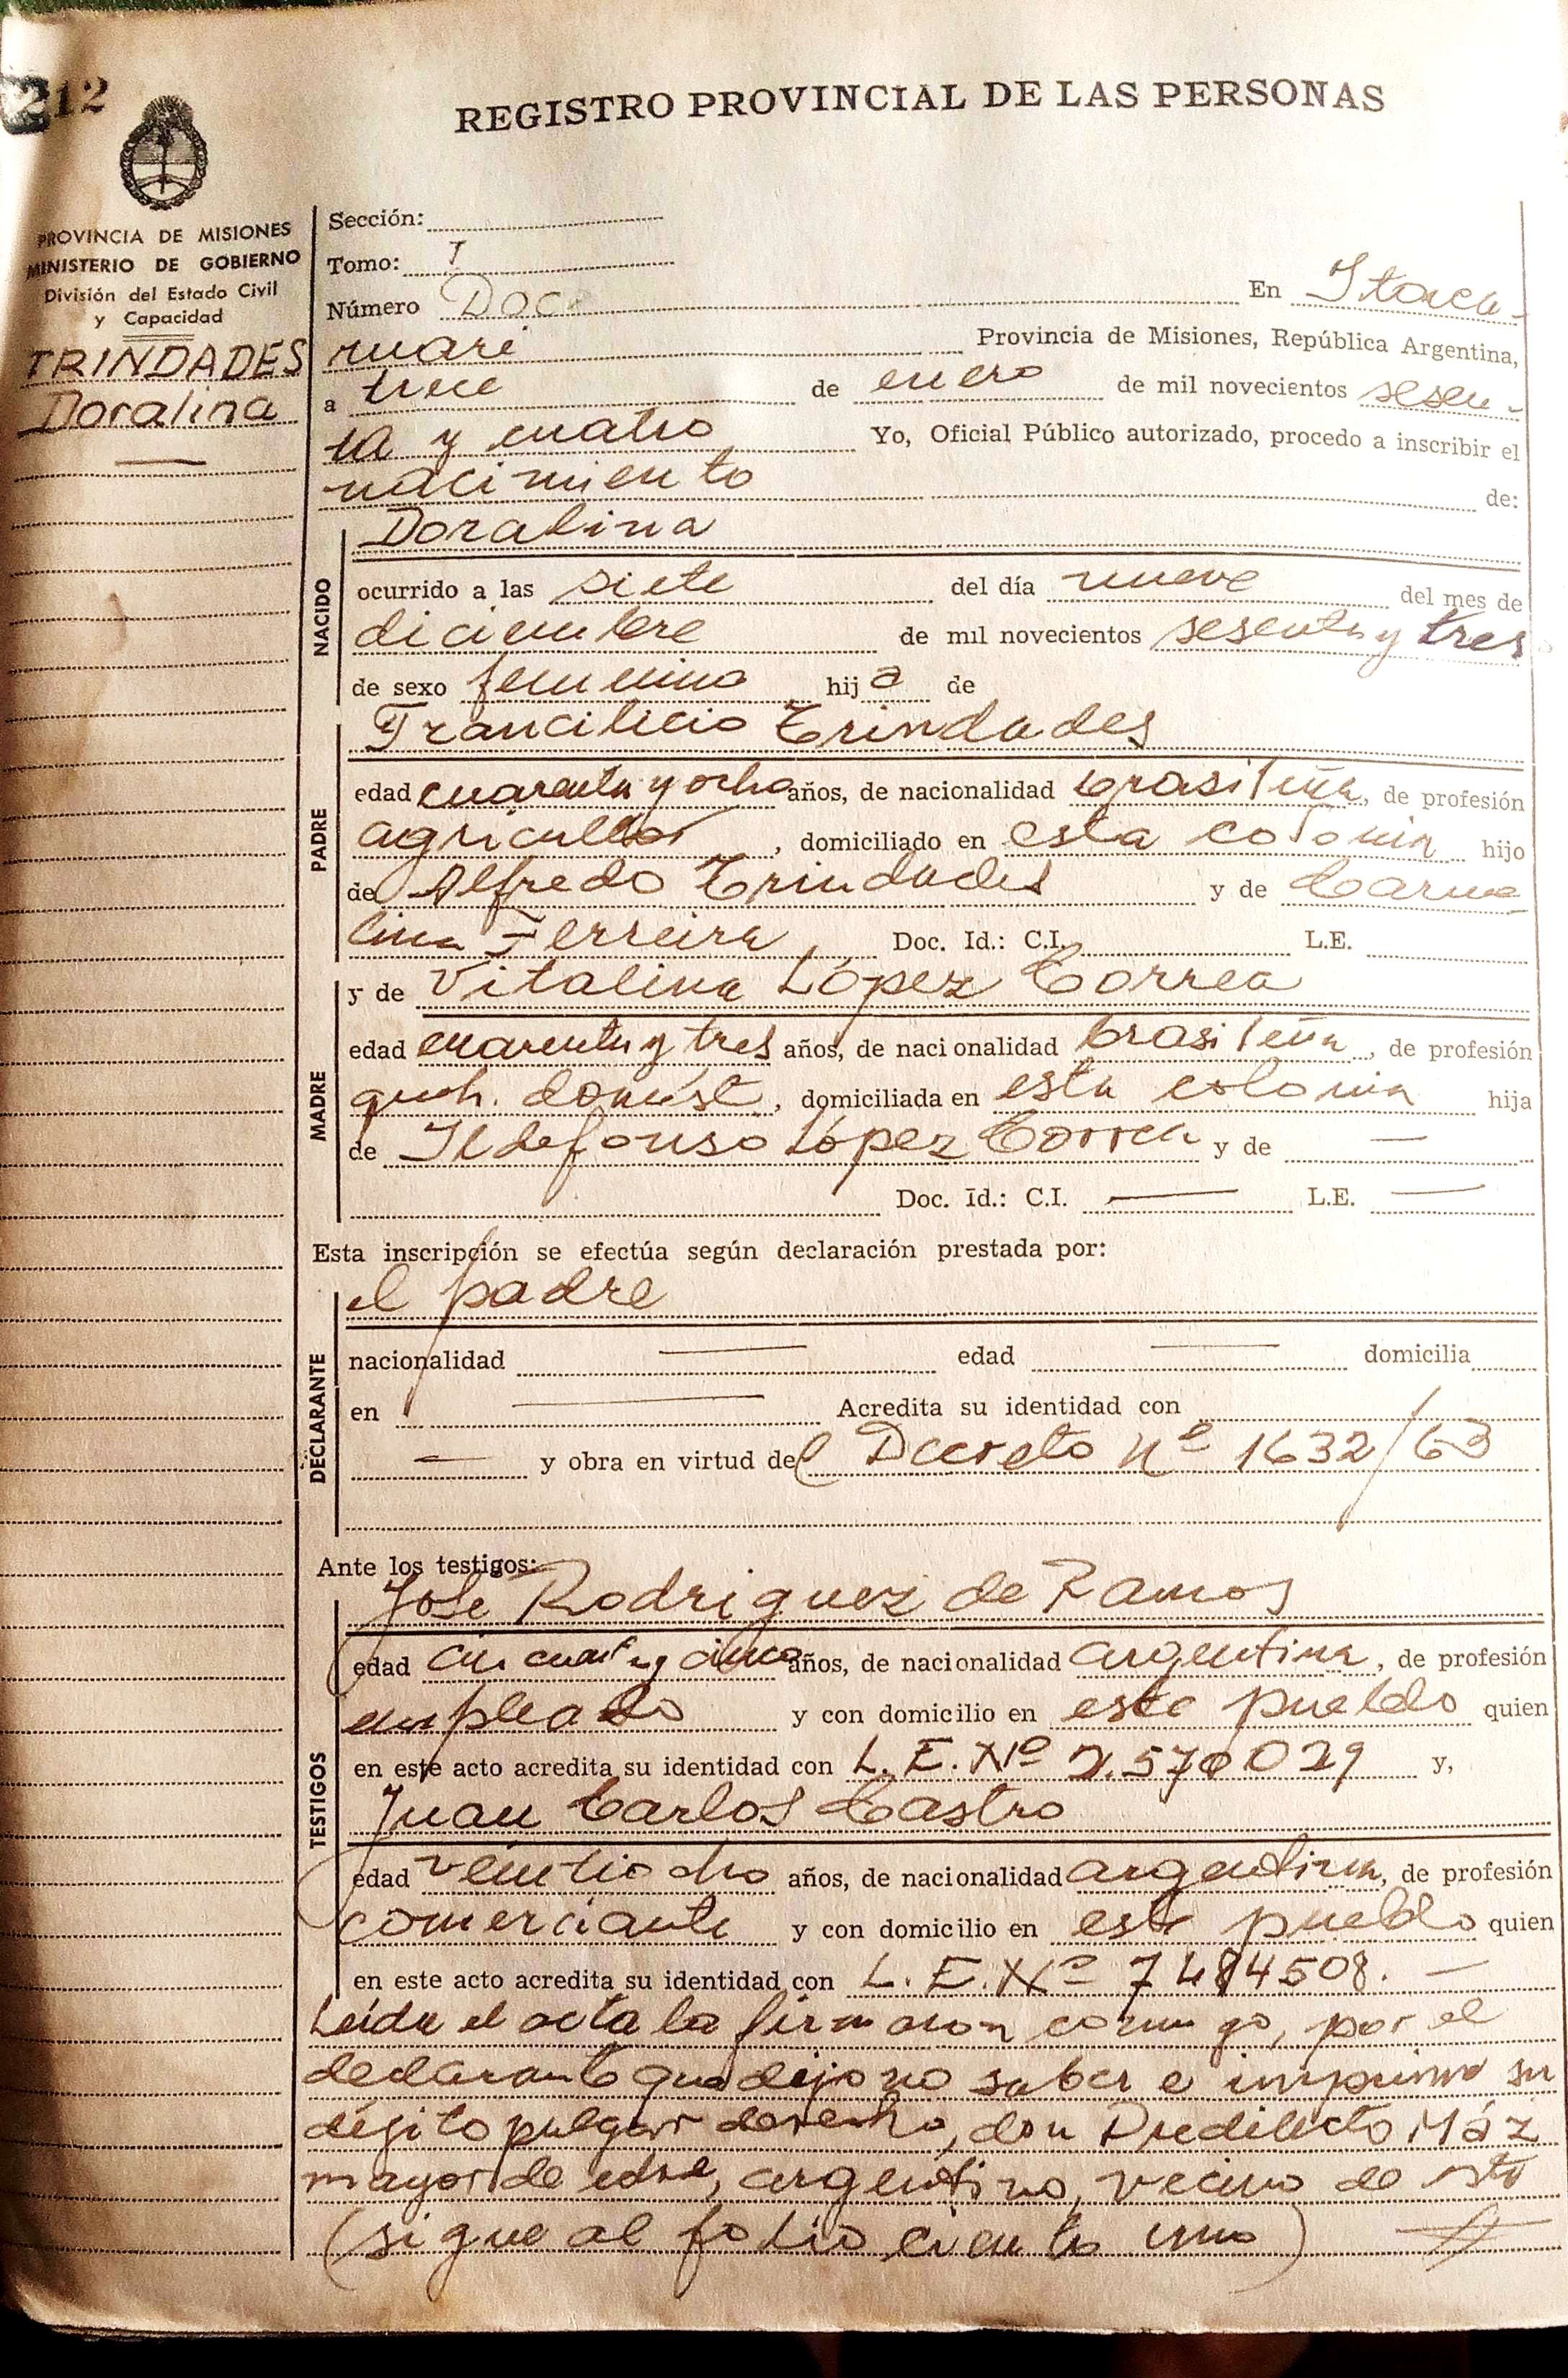 212
REGISTRO PROVINCIAL DE LAS PERSONAS
PROVINCIA DE MISIONES
MINISTERIO DE GOBIERNO
División del Estado Civil
y Capacidad
TRINDADES
Doralina
Sección:
Tomo: I
Número Doce En Itaca-
ruaré Provincia de Misiones, República Argentina,
a trece de enero de mil novecientos sesen-
ta y cuatro Yo, Oficial Público autorizado, procedo a inscribir el
nacimiento de:
Doralina
NACIDO
ocurrido a las siete del día nueve del mes de
diciembre de mil novecientos sesenta y tres
de sexo femenino hija de
Trindades
PADRE
edad cuarenta y ocho años, de nacionalidad brasileña, de profesión
agricultor, domiciliado en esta colonia hijo
de Alfredo Trindades y de Carme-
lina Ferreira, Doc. Id.: C.I. L.E.
y de Vitalina López Correa
MADRE
edad cuarenta y tres años, de nacionalidad brasileña, de profesión
queh. domést., domiciliada en esta colonia hija
de Ildefonso López Correa y de —
Doc. Id.: C.I. — L.E. —
Esta inscripción se efectúa según declaración prestada por:
el padre
DECLARANTE
nacionalidad — edad — domicilia
en — Acredita su identidad con
— y obra en virtud del Decreto Nº 1632/63
Ante los testigos:
José Rodriguez de Ramos
TESTIGOS
edad cincuenta y cinco años, de nacionalidad argentina, de profesión
empleado y con domicilio en este pueblo quien
en este acto acredita su identidad con L. E. Nº 2.570029 y,
Juan Carlos Castro
edad veintiocho años, de nacionalidad argentina, de profesión
comerciante y con domicilio en este pueblo quien
en este acto acredita su identidad con L. E. Nº 7484508. —
Leída el acta la firmaron conmigo, por el
declarante que dijo no saber e imprime su
dígito pulgar derecho, don Predilecto
mayor de edad, argentino, vecino de
(sigue al folio ciento uno)